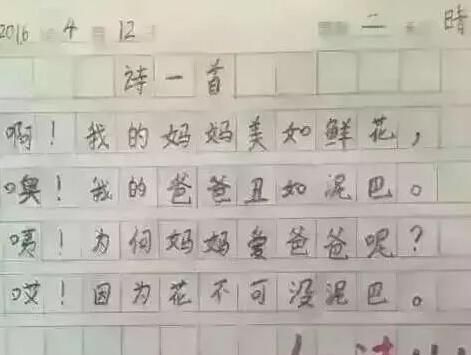 2016 4 12 二 晴
诗一首
啊！我的妈妈美如鲜花，
噢！我的爸爸丑如泥巴。
咦！为何妈妈爱爸爸呢？
哎！因为花不可没泥巴。